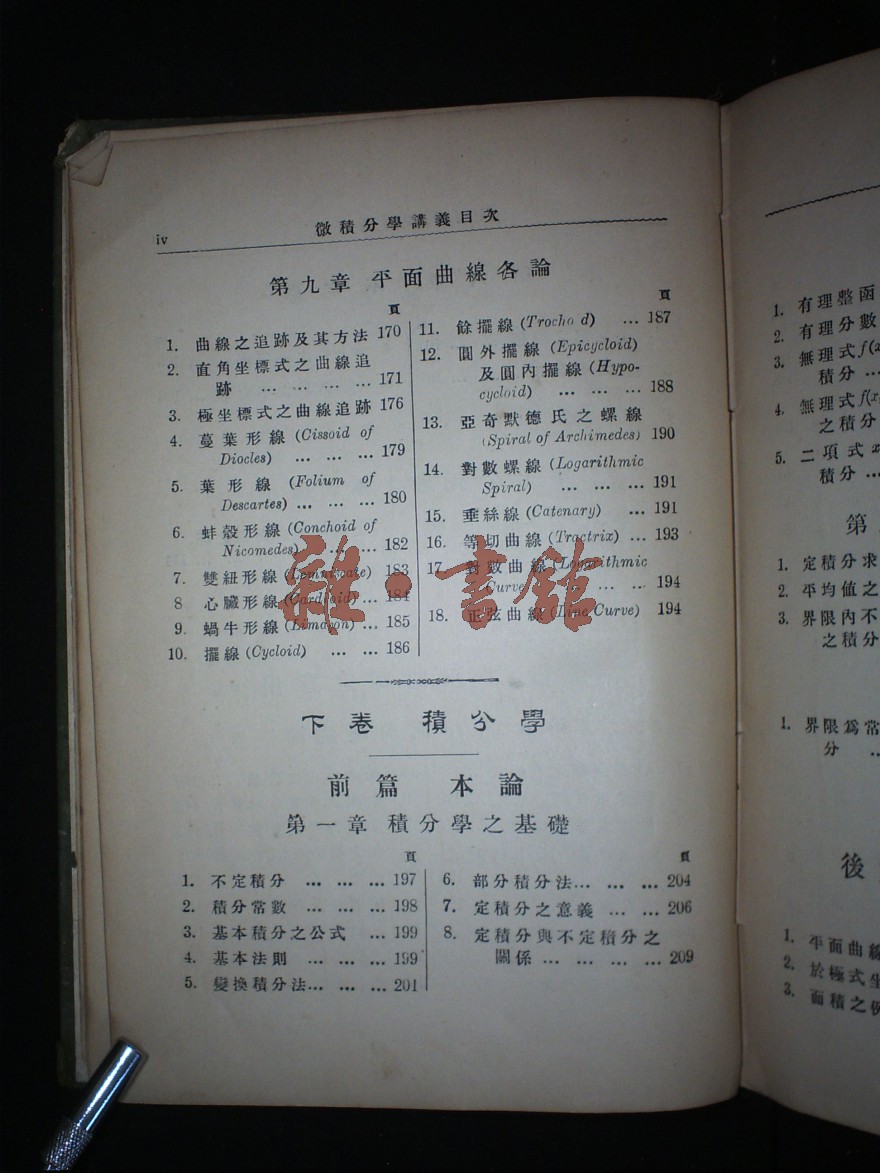 iv
微積分學講義目次
第九章 平面曲線各論
頁
1. 曲線之追跡及其方法 170
2. 直角坐標式之曲線追
跡 … … … … 171
3. 極坐標式之曲線追跡 176
4. 蔓葉形線 (Cissoid of
Diocles) … … … 179
5. 葉形線 (Folium of
Descartes) … … … 180
6. 蚌殼形線 (Conchoid of
Nicomedes) … … 182
7. 雙紐形線 (Lemniscate) 183
8 心臟形線 (Cardioid) … 184
9. 蝸牛形線 (Limaçon) … 185
10. 擺線 (Cycloid) … … 186
頁
11. 餘擺線 (Trocho d) … 187
12. 圓外擺線 (Epicycloid)
及圓內擺線 (Hypo-
cycloid) … … … 188
13. 亞奇默德氏之螺線
(Spiral of Archimedes) 190
14. 對數螺線 (Logarithmic
Spiral) … … … 191
15. 垂絲線 (Catenary) … 191
16. 等切曲線 (Tractrix) … 193
17. 對數曲線 (Logarithmic
Curve) … … … 194
18. 正弦曲線 (Curve) 194
雜·書館
下卷 積分學
前篇 本論
第一章 積分學之基礎
頁
1. 不定積分 … … … 197
2. 積分常數 … … … 198
3. 基本積分之公式 … 199
4. 基本法則 … … … 199
5. 變換積分法… … … 201
頁
6. 部分積分法… … … 204
7. 定積分之意義 … … 206
8. 定積分與不定積分之
關係 … … … 209
1. 有理整函
2. 有理分數
3. 無理式 f(x
積分 …
4. 無理式 f(x
之積分
5. 二項式 x
積分 …
第
1. 定積分求
2. 平均值之
3. 界限內不
之積分
1. 界限爲常
分 …
後
1. 平面曲線
2. 於極式坐
3. 面積之例